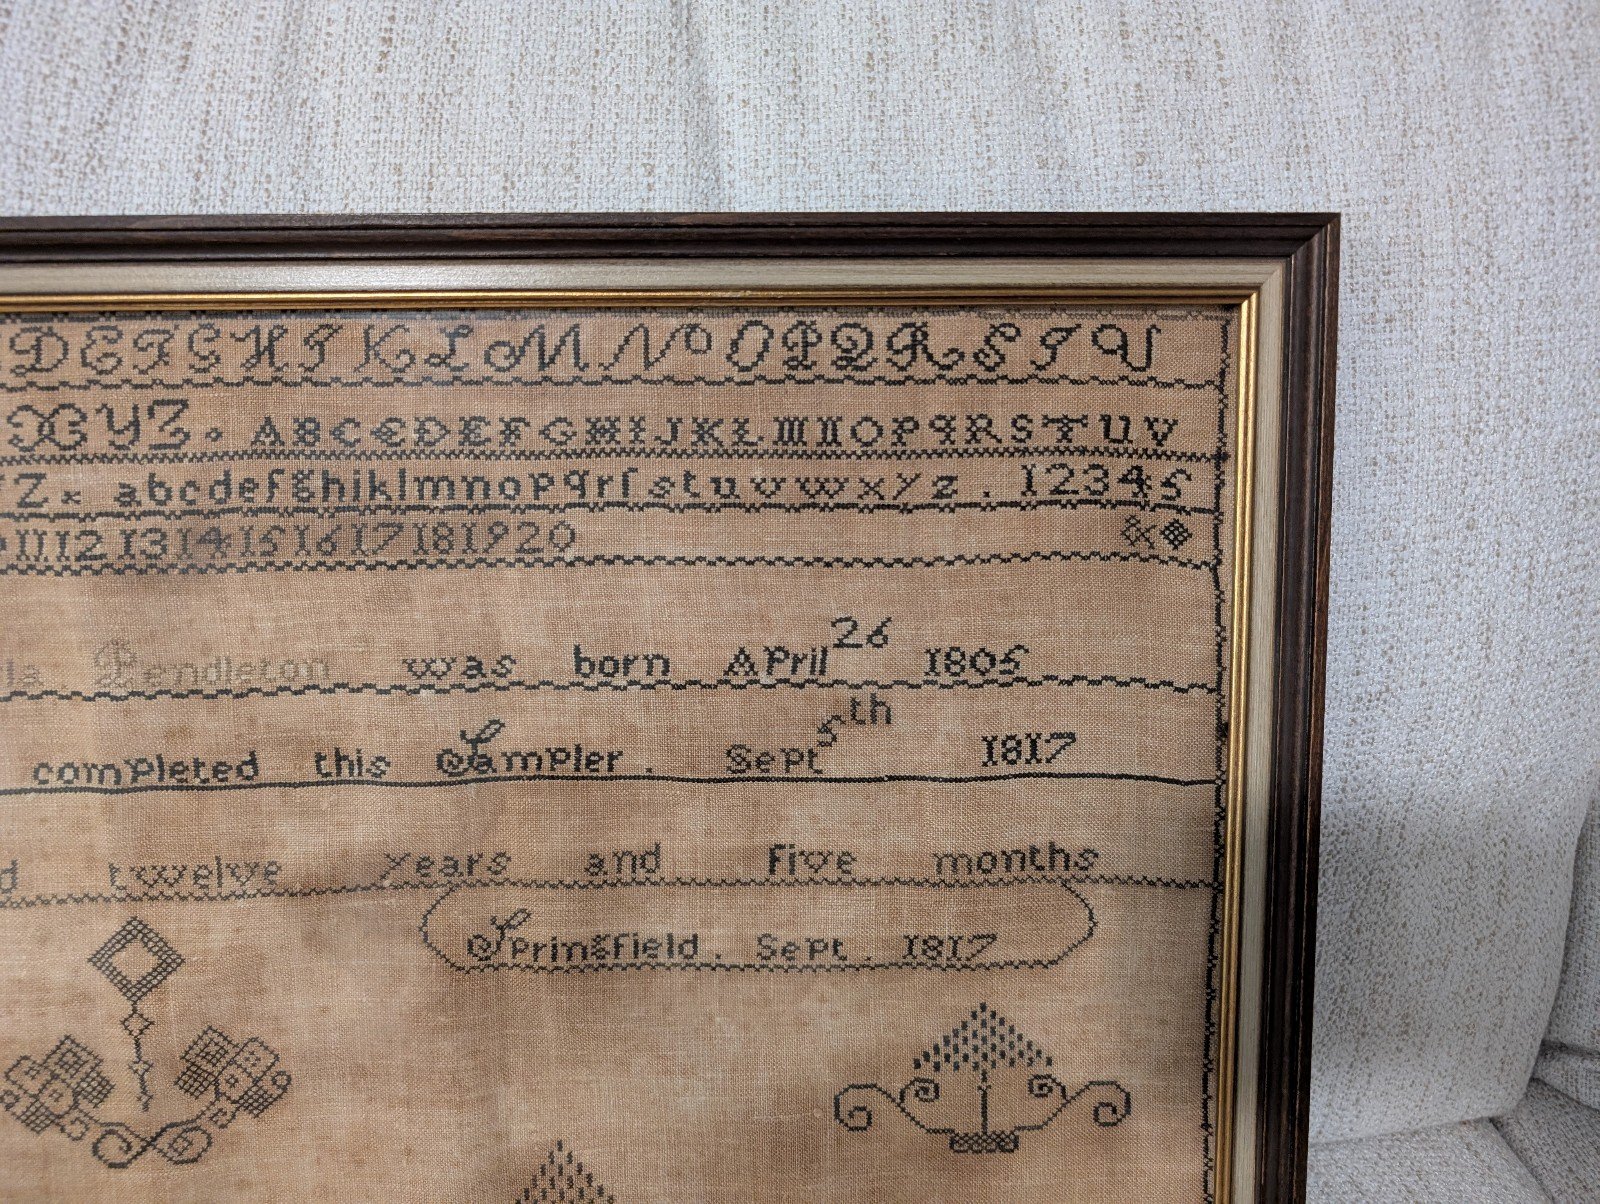 D E F G H I K L M N O P Q R S T U
X Y Z . A B C C D E F G H I J K L M N O P q R S T U V
Z a b c d e f g h i k l m n o p q r ſ s t u v w x y z . 1 2 3 4 5
11 12 13 14 15 16 17 18 19 20 &
la Pendleton was born April 26 1805
completed this Sampler . Sept 5th 1817
d twelve years and five months
Springfield . Sept . 1817